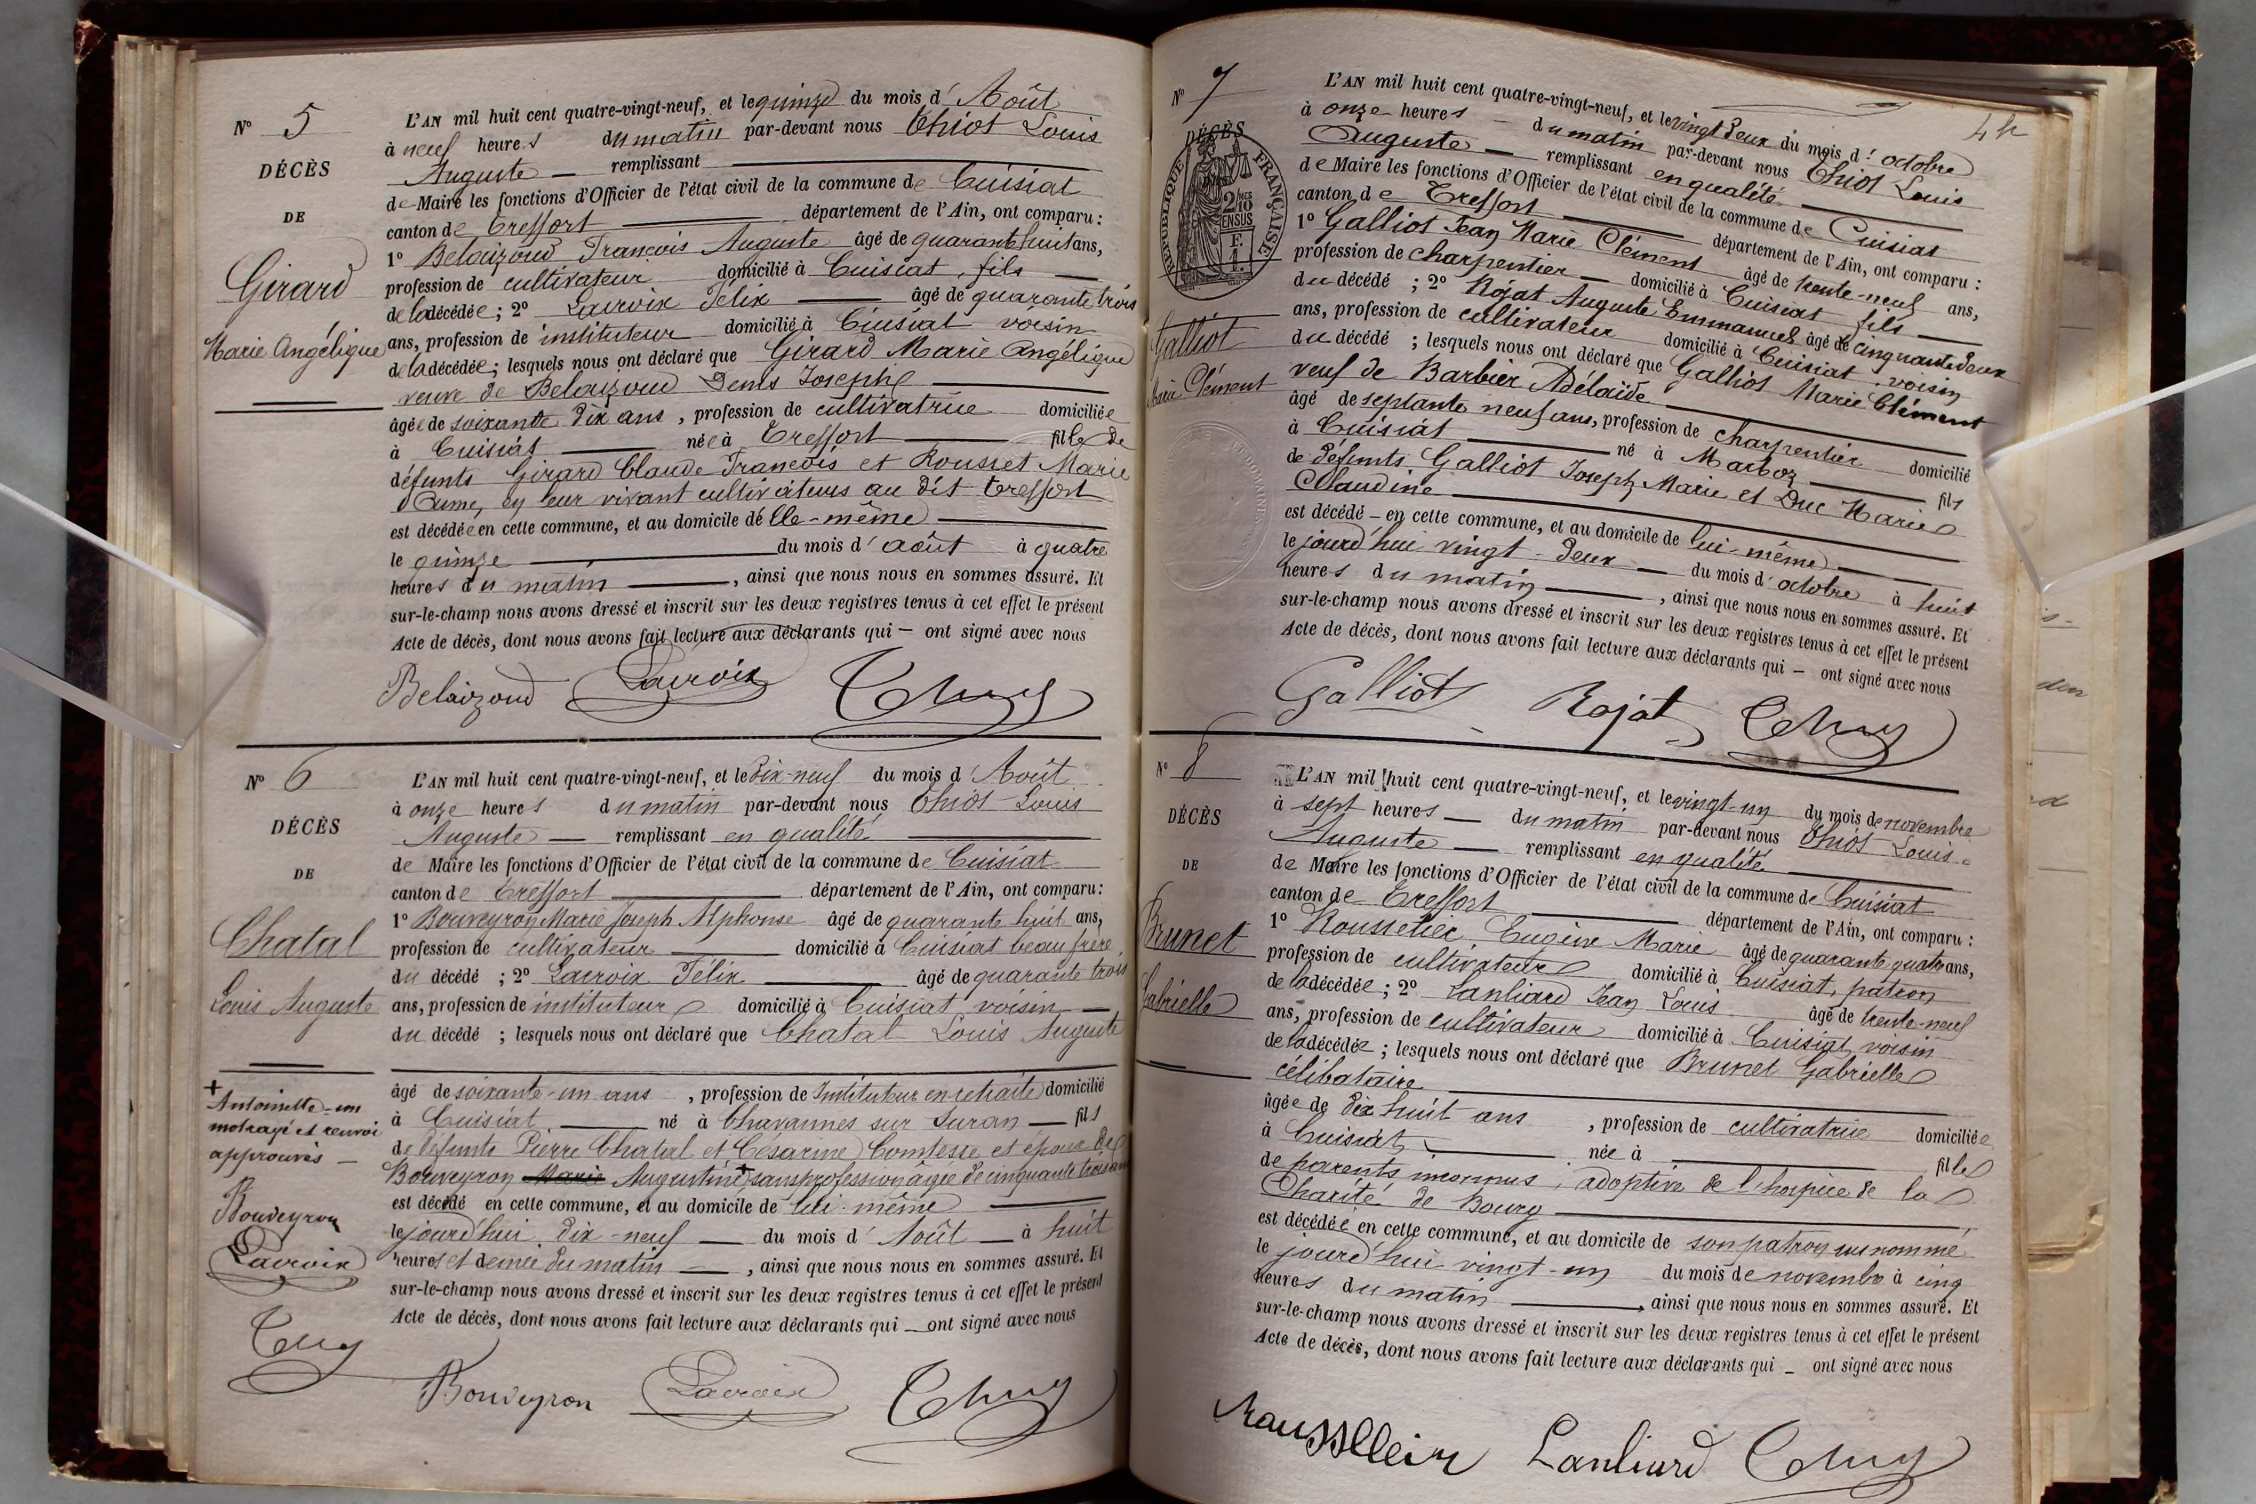 N° 5
DÉCÈS
DE
Girard
Marie Angélique
L'AN mil huit cent quatre-vingt-neuf, et le quinze du mois d'Août
à neuf heures du matin par-devant nous Chiot Louis
Auguste — remplissant
de Maire les fonctions d'Officier de l'état civil de la commune de Cuisiat
canton de Treffort département de l'Ain, ont comparu :
1° Belaizoud François Auguste âgé de quarante huit ans,
profession de cultivateur domicilié à Cuisiat, fils
de la décédée ; 2° Lacroix Félix âgé de quarante trois
ans, profession de instituteur domicilié à Cuisiat voisin
de la décédée ; lesquels nous ont déclaré que Girard Marie Angélique
veuve de Belaizoud Denis Joseph
âgée de soixante dix ans, profession de cultivatrice domiciliée
à Cuisiat née à Treffort fille de
défunts Girard Claude François et Rousset Marie
en leur vivant cultivateurs au dit Treffort
est décédée en cette commune, et au domicile d'elle-même
le quinze du mois d'août à quatre
heures du matin, ainsi que nous nous en sommes assuré. Et
sur-le-champ nous avons dressé et inscrit sur les deux registres tenus à cet effet le présent
Acte de décès, dont nous avons fait lecture aux déclarants qui — ont signé avec nous
Belaizoud Lacroix
N° 6
DÉCÈS
DE
Chatal
Louis Auguste
+
Antoinette - un
mot rayé et renvoi
approuvés —
Bouveyron
Lacroix
L'AN mil huit cent quatre-vingt-neuf, et le dix-neuf du mois d'Août
à onze heures du matin par-devant nous Chiot Louis
Auguste — remplissant en qualité
de Maire les fonctions d'Officier de l'état civil de la commune de Cuisiat
canton de Treffort département de l'Ain, ont comparu :
1° Bouveyron Marie Joseph Alphonse âgé de quarante huit ans,
profession de cultivateur domicilié à Cuisiat beau frère
du décédé ; 2° Lacroix Félix âgé de quarante trois
ans, profession de instituteur domicilié à Cuisiat voisin
du décédé ; lesquels nous ont déclaré que Chatal Louis Auguste
âgé de soixante-un ans, profession de Instituteur en retraite domicilié
à Cuisiat né à Chavannes sur Suran fils
de défunts Pierre Chatal et Césarine Comtesse et époux de
Bouveyron Marie Augustine + sans profession âgée de cinquante trois ans
est décédé en cette commune, et au domicile de lui-même
le jourd'hui dix-neuf du mois d'Août à huit
heures et demie du matin, ainsi que nous nous en sommes assuré. Et
sur-le-champ nous avons dressé et inscrit sur les deux registres tenus à cet effet le présent
Acte de décès, dont nous avons fait lecture aux déclarants qui — ont signé avec nous
Bouveyron Lacroix
N° 7
DÉCÈS
RÉPUBLIQUE FRANÇAISE
Galliot
Marie Clément
L'AN mil huit cent quatre-vingt-neuf, et le vingt deux du mois d'octobre
à onze heures du matin par-devant nous Chiot Louis
Auguste — remplissant en qualité
de Maire les fonctions d'Officier de l'état civil de la commune de Cuisiat
canton de Treffort département de l'Ain, ont comparu :
1° Galliot Jean Marie Clément âgé de trente-neuf ans,
profession de charpentier domicilié à Cuisiat fils
du décédé ; 2° Rojat Auguste Emmanuel âgé de cinquante deux
ans, profession de cultivateur domicilié à Cuisiat, voisin
du décédé ; lesquels nous ont déclaré que Galliot Marie Clément
veuf de Barbier Adélaïde
âgé de septante neuf ans, profession de charpentier domicilié
à Cuisiat né à Marboz fils
de défunts Galliot Joseph Marie et Duc Marie
Claudine
est décédé en cette commune, et au domicile de lui-même
le jourd'hui vingt-deux du mois d'octobre à huit
heures du matin, ainsi que nous nous en sommes assuré. Et
sur-le-champ nous avons dressé et inscrit sur les deux registres tenus à cet effet le présent
Acte de décès, dont nous avons fait lecture aux déclarants qui — ont signé avec nous
Galliot Rojat
N° 8
DÉCÈS
DE
Brunet
Gabrielle
L'AN mil huit cent quatre-vingt-neuf, et le vingt-un du mois de novembre
à sept heures du matin par-devant nous Chiot Louis
Auguste — remplissant en qualité
de Maire les fonctions d'Officier de l'état civil de la commune de Cuisiat
canton de Treffort département de l'Ain, ont comparu :
1° Rousselier Eugène Marie âgé de quarante quatre ans,
profession de cultivateur domicilié à Cuisiat, patron
de la décédée ; 2° Lanliard Jean Louis âgé de trente-neuf
ans, profession de cultivateur domicilié à Cuisiat voisin
de la décédée ; lesquels nous ont déclaré que Brunet Gabrielle
célibataire
âgée de dix huit ans, profession de cultivatrice domiciliée
à Cuisiat née à fille
de parents inconnus, adoptive de l'hospice de la
Charité de Bourg
est décédée en cette commune, et au domicile de son patron sus nommé
le jourd'hui vingt-un du mois de novembre à cinq
heures du matin, ainsi que nous nous en sommes assuré. Et
sur-le-champ nous avons dressé et inscrit sur les deux registres tenus à cet effet le présent
Acte de décès, dont nous avons fait lecture aux déclarants qui — ont signé avec nous
Lanliard